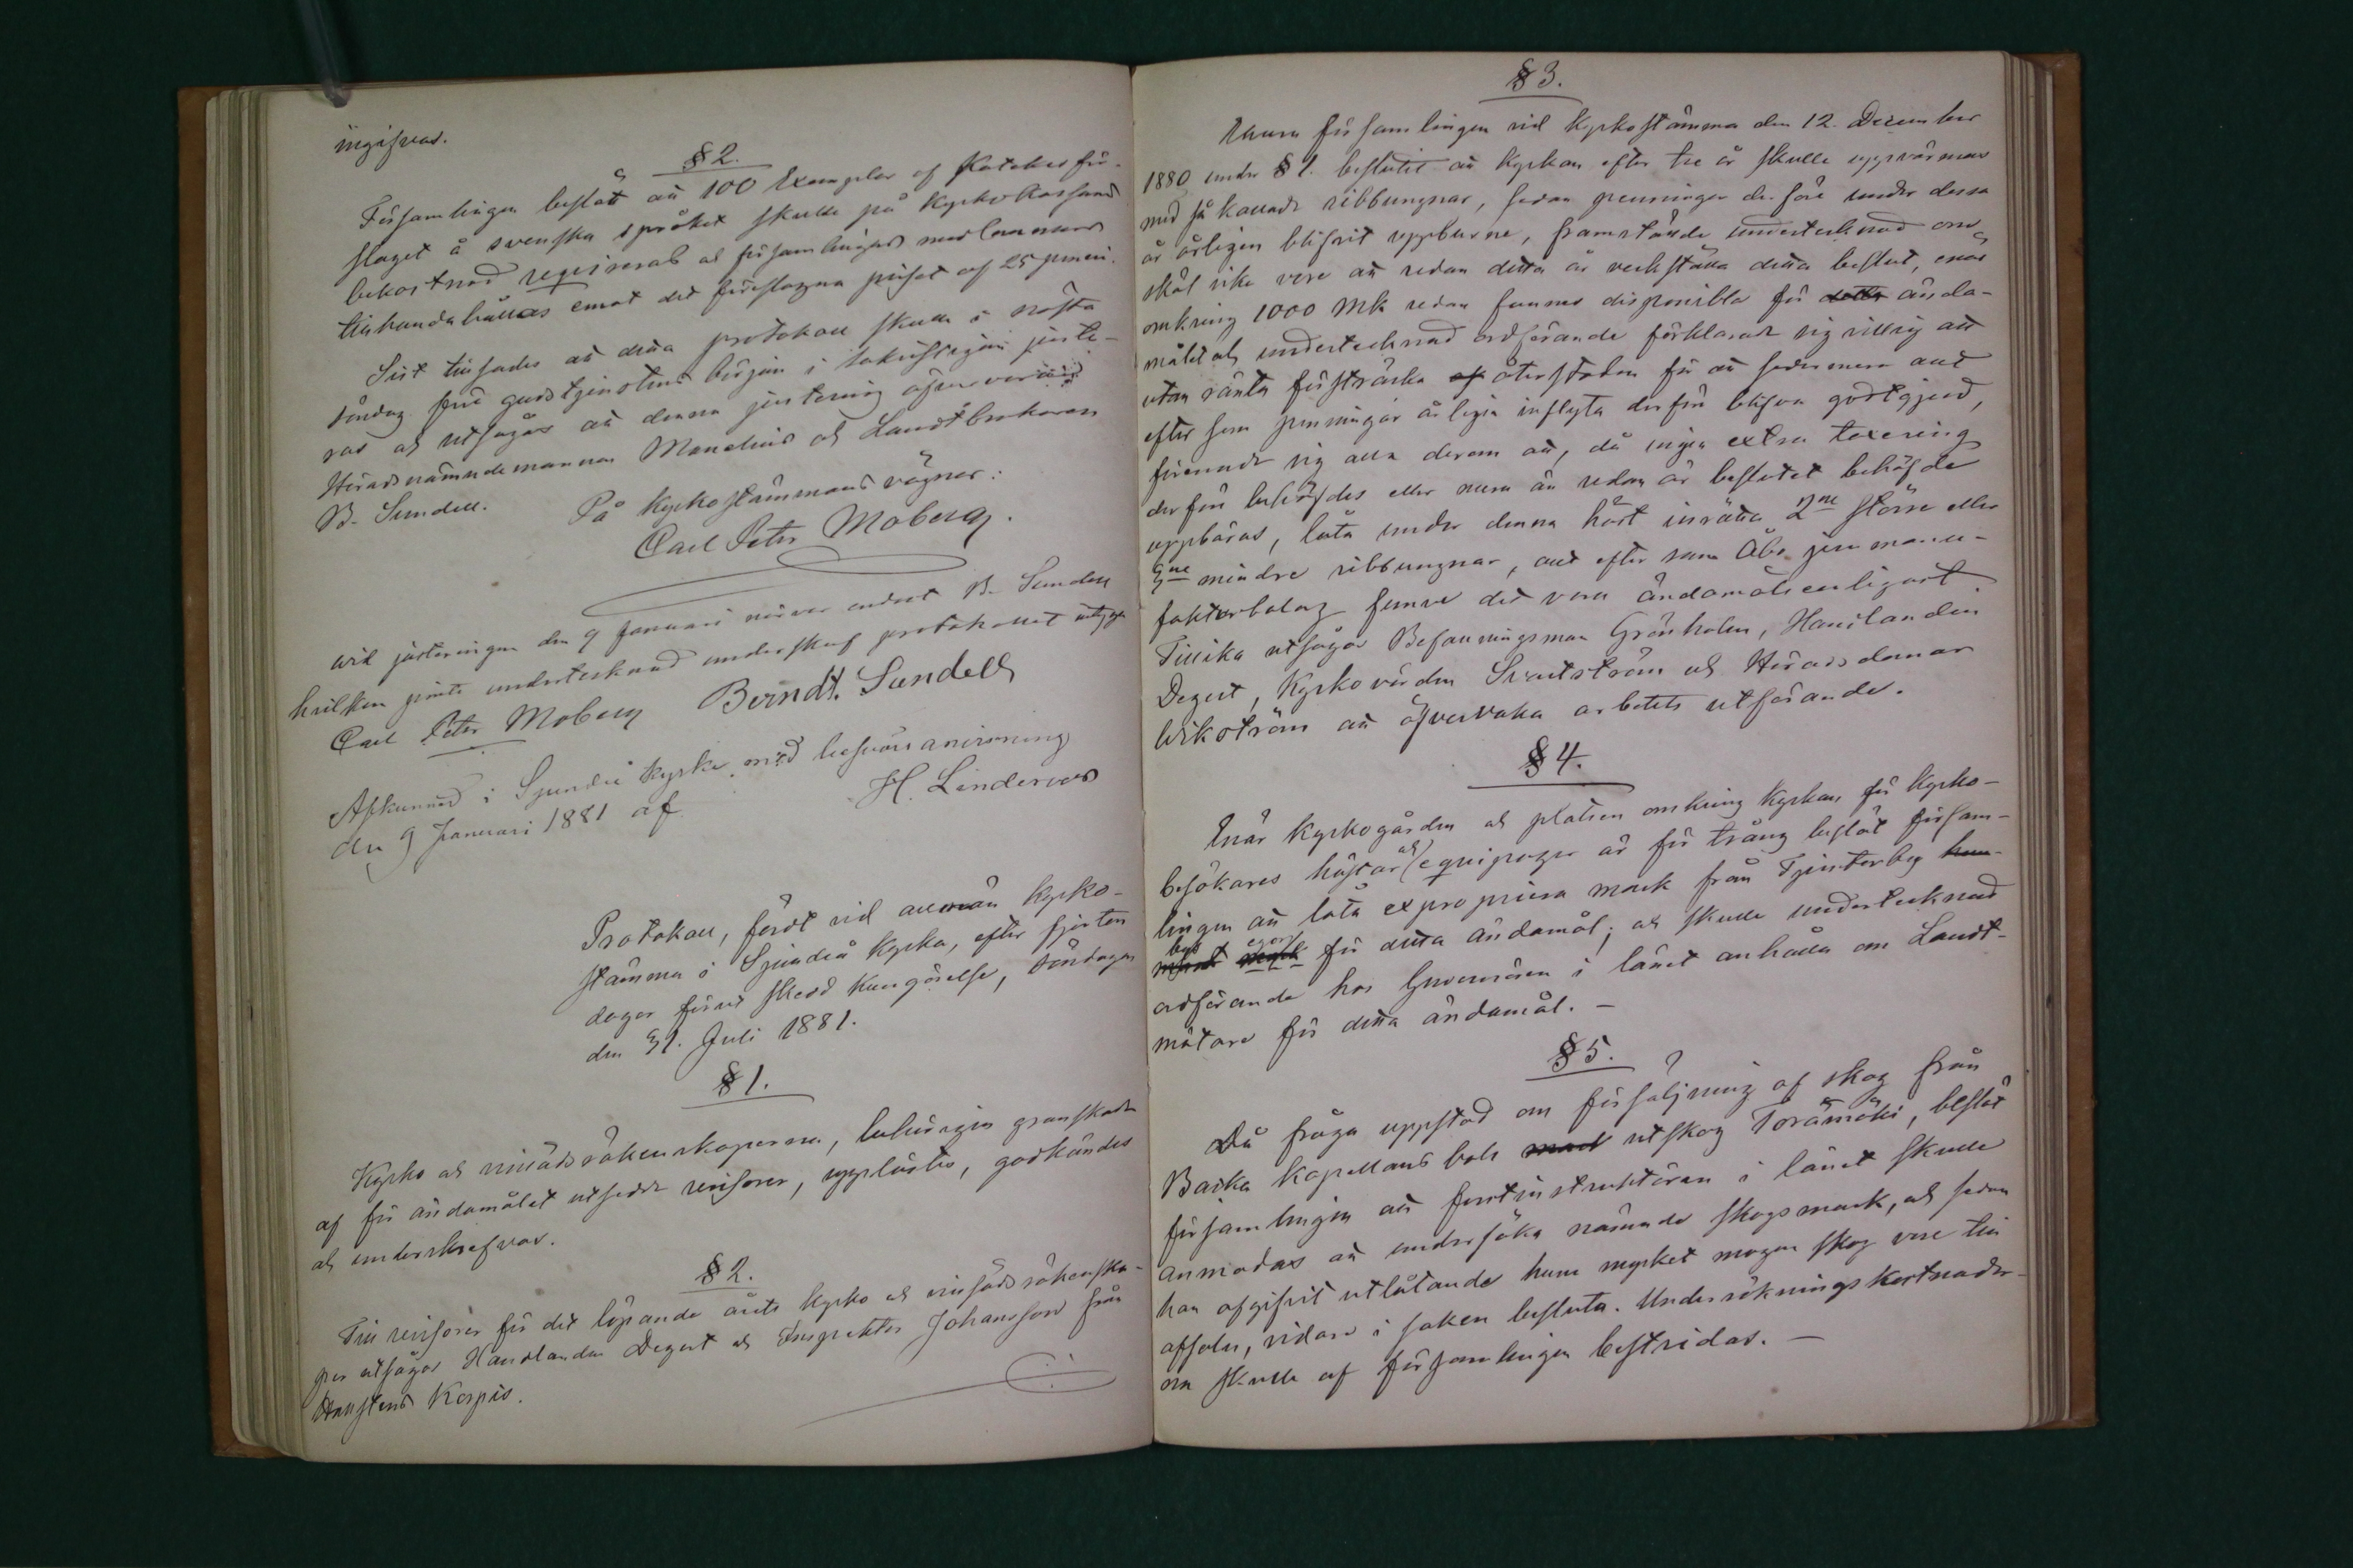 ingifvas.
§ 2.
Församlingen beslöt att 100 Exemplar af Kateches för-
slaget å svenska språket skulle på Kyrko kassans
bekostnad requireras och församlingens medlemmar
tillhandahållas emot det föreslagna priset af 25 penni.
Sist tillsades att detta protokoll skulle i nästa
söndag före gudstjenstens början i sakristigan juste-
ras och utsågos att denna justering öfvervara
Häradsnämndemannen Manelius och Landtbrukaren
B. Sundell.
På Kyrkostämmans vägnar:
Carl Peter Moberg.
Wid justeringen den 9 Januari närvar endast B. Sundell
hvilken jemte undertecknad underskref protokollet
Carl Peter Moberg Berndt. Sundell
Afkunnad i Sjundeå Kyrka med besvärs anvisning
den 9 Januari 1881 af H. Linderoos
Protokoll, fördt vid allmän Kyrko-
stämma i Sjundeå Kyrka, efter fjorton
dagar förut skedd kungörelse, söndagen
den 31. Juli 1881.
§ 1.
Kyrko och räkenskaperna, behörigen granskade
af för ändamålet utsedde revisorer, upplästes, godkändes
och underskrefvos.
§ 2.
Till revisorer för det löpande årets Kyrko och räkenska-
per utsågos Handlanden Degert och Inspektor Johansson från
Korpis.
§ 3.
församlingen vid Kyrkostämma den 12. December
1880 under § 1. beslutit att Kyrkan efter tre år skulle uppvärmas
med så kallade ribbungnar, sedan penningar derföre under dessa
år årligen blifvit uppburne, framstälde undertecknad om
skäl icke vore att redan detta år verkställa detta beslut, enär
omkring 1000 Mk redan funnes disponibla för detta ända-
målet och undertecknad ordförande förklarade sig villig att
utan ränta försträcka af återstoden för att sedermera allt
efter som penningar årligen inflyta derför blifva godtgjord,
förenade sig alla derom att, då ingen extra taxering
derför behöfdes eller mera än redan är beslutet behöfde
uppbäras, låta under denna höst inrätta 2ne större eller
mindre ribbungnar, allt efter som Åbo jern manu-
fakturbolag funne det vara ändamålsenligast
Tillika utsågos Befallningsman Grönholm, Handlanden
Degert, Kyrkovärden och Häradsdomar
Wikström att öfvervaka arbetets utförande.
§ 4.
Enär Kyrkogården och platsen omkring Kyrkan för Kyrko-
besökares hästar och equipager är för trång beslöt försam-
lingen att låta expropriera mark från Tjusterby
bys egor för detta ändamål; och skulle undertecknad
ordförande hos Guvernören i länet anhålla om Landt-
mätare för detta ändamål. —
§ 5.
Då fråga uppstod om försäljning af skog från
Backa Kapellans bols utskog Toramäki, beslöt
församlingen att forstinstruktören i länet skulle
anmodas att undersöka nämnde skogsmark, och sedan
han afgifvit utlåtande huru mycket mogen skog vore till
afsalu, vidare i saken besluta. Undersökningskostnader-
na skulle af församlingen bestridas. —